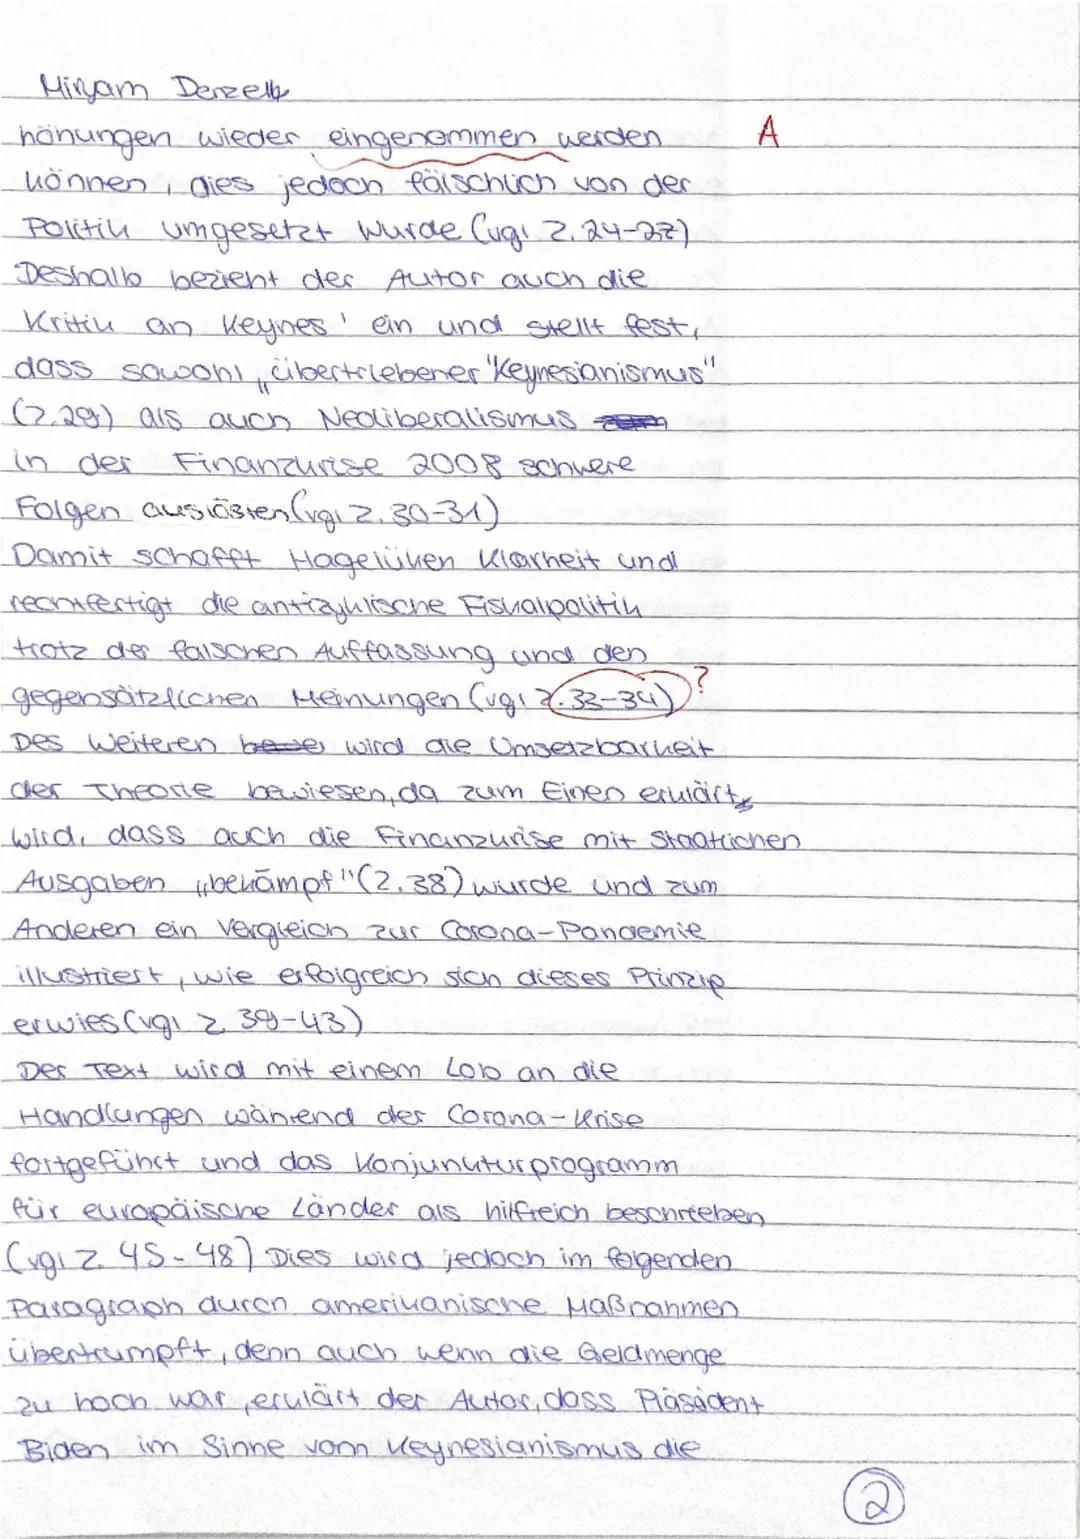 Miryam Denzelb
höhungen wieder eingenommen werden A
können, dies jedoch fälschlich von der
Politik umgesetzt wurde (vgl Z. 24-27)
Deshalb bezieht der Autor auch die
Kritik an Keynes' ein und stellt fest,
dass sowohl „übertriebener "Keynesianismus"
(Z.29) als auch Neoliberalismus
in der Finanzkrise 2008 schwere
Folgen auslösten (vgl Z. 30-31)
Damit schafft Hagelüken Klarheit und
rechtfertigt die antizyklische Fiskalpolitik
trotz der falschen Auffassung und den
gegensätzlichen Meinungen (vgl Z. 33-34) ?
Des Weiteren wird die Umsetzbarkeit
der Theorie bewiesen, da zum Einen erklärt
wird, dass auch die Finanzkrise mit staatlichen
Ausgaben „bekämpf" (Z. 38) wurde und zum
Anderen ein Vergleich zur Corona-Pandemie
illustriert, wie erfolgreich sich dieses Prinzip
erwies (vgl Z 39-43)
Der Text wird mit einem Lob an die
Handlungen während der Corona-Krise
fortgeführt und das Konjunkturprogramm
für europäische Länder als hilfreich beschrieben
(vgl Z. 45-48) Dies wird jedoch im folgenden
Paragraph durch amerikanische Maßnahmen
übertrumpft, denn auch wenn die Geldmenge
zu hoch war, erklärt der Autor, dass Präsident
Biden im Sinne vom Keynesianismus die
2